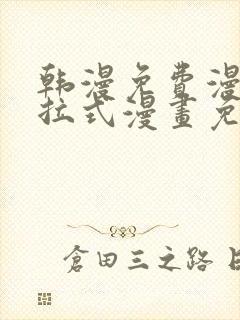 韩漫免費漫
拉式漫畫免
倉田三之路